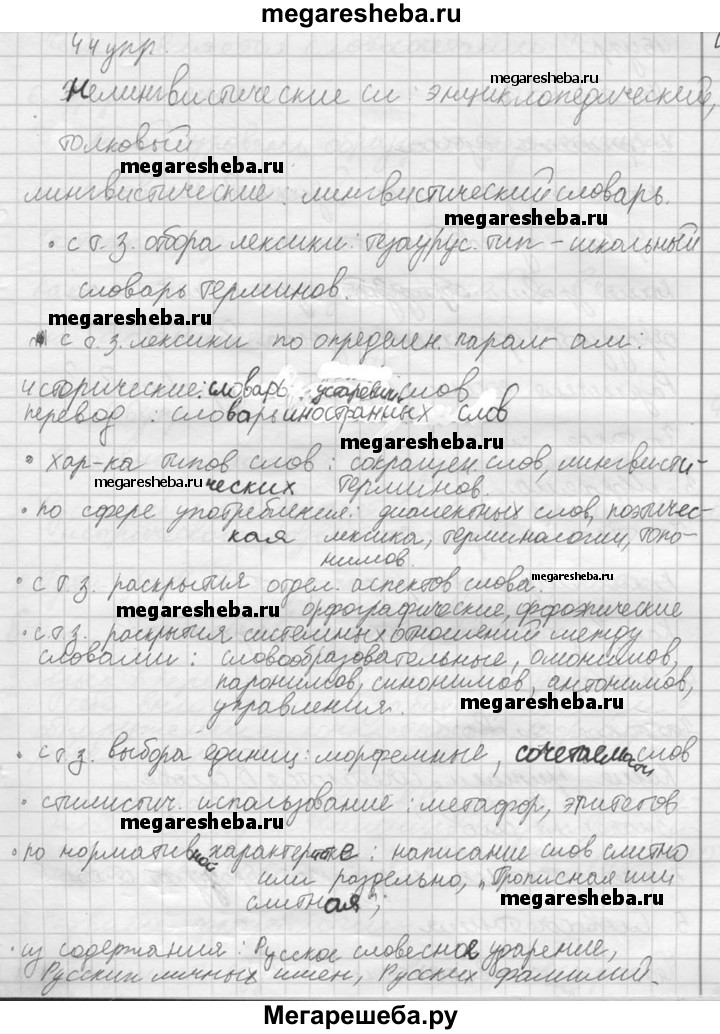 megaresheba.ru
44 упр.
Нелингвистические сл: энциклопедический,
megaresheba.ru
толковый
megaresheba.ru
лингвистические: лингвистический словарь.
megaresheba.ru
• с т.з. отбора лексики: тезаурус. тип – школьный
словарь терминов.
megaresheba.ru
• с т.з. лексики по определен. парам-ам:
исторические: словарь устаревших слов
перевод: словарь иностранных слов
megaresheba.ru
• хар-ка типов слов: сокращен слов, лингвисти-
megaresheba.ru
ческих терминов.
• по сфере употребления: диалектных слов, поэтичес-
кая лексика, терминологии, топо-
нимов.
• с т.з. раскрытия отдел. аспектов слова:
megaresheba.ru
megaresheba.ru
орфографические, орфоэпические
• с т.з. раскрытия системных отношений между
словами: словообразовательные, омонимов,
паронимов, синонимов, антонимов,
megaresheba.ru
управления.
• с т.з. выбора единиц: морфемные, сочетаемости слов
• стилистич. использование: метафор, эпитетов
megaresheba.ru
• по нормативной характер-ке: написание слов слитно
или раздельно, „Прописная или
megaresheba.ru
слитная";
• из содержания: Русское словесное ударение,
Русских личных имен, Русских фамилий.
Мегарешеба.ру